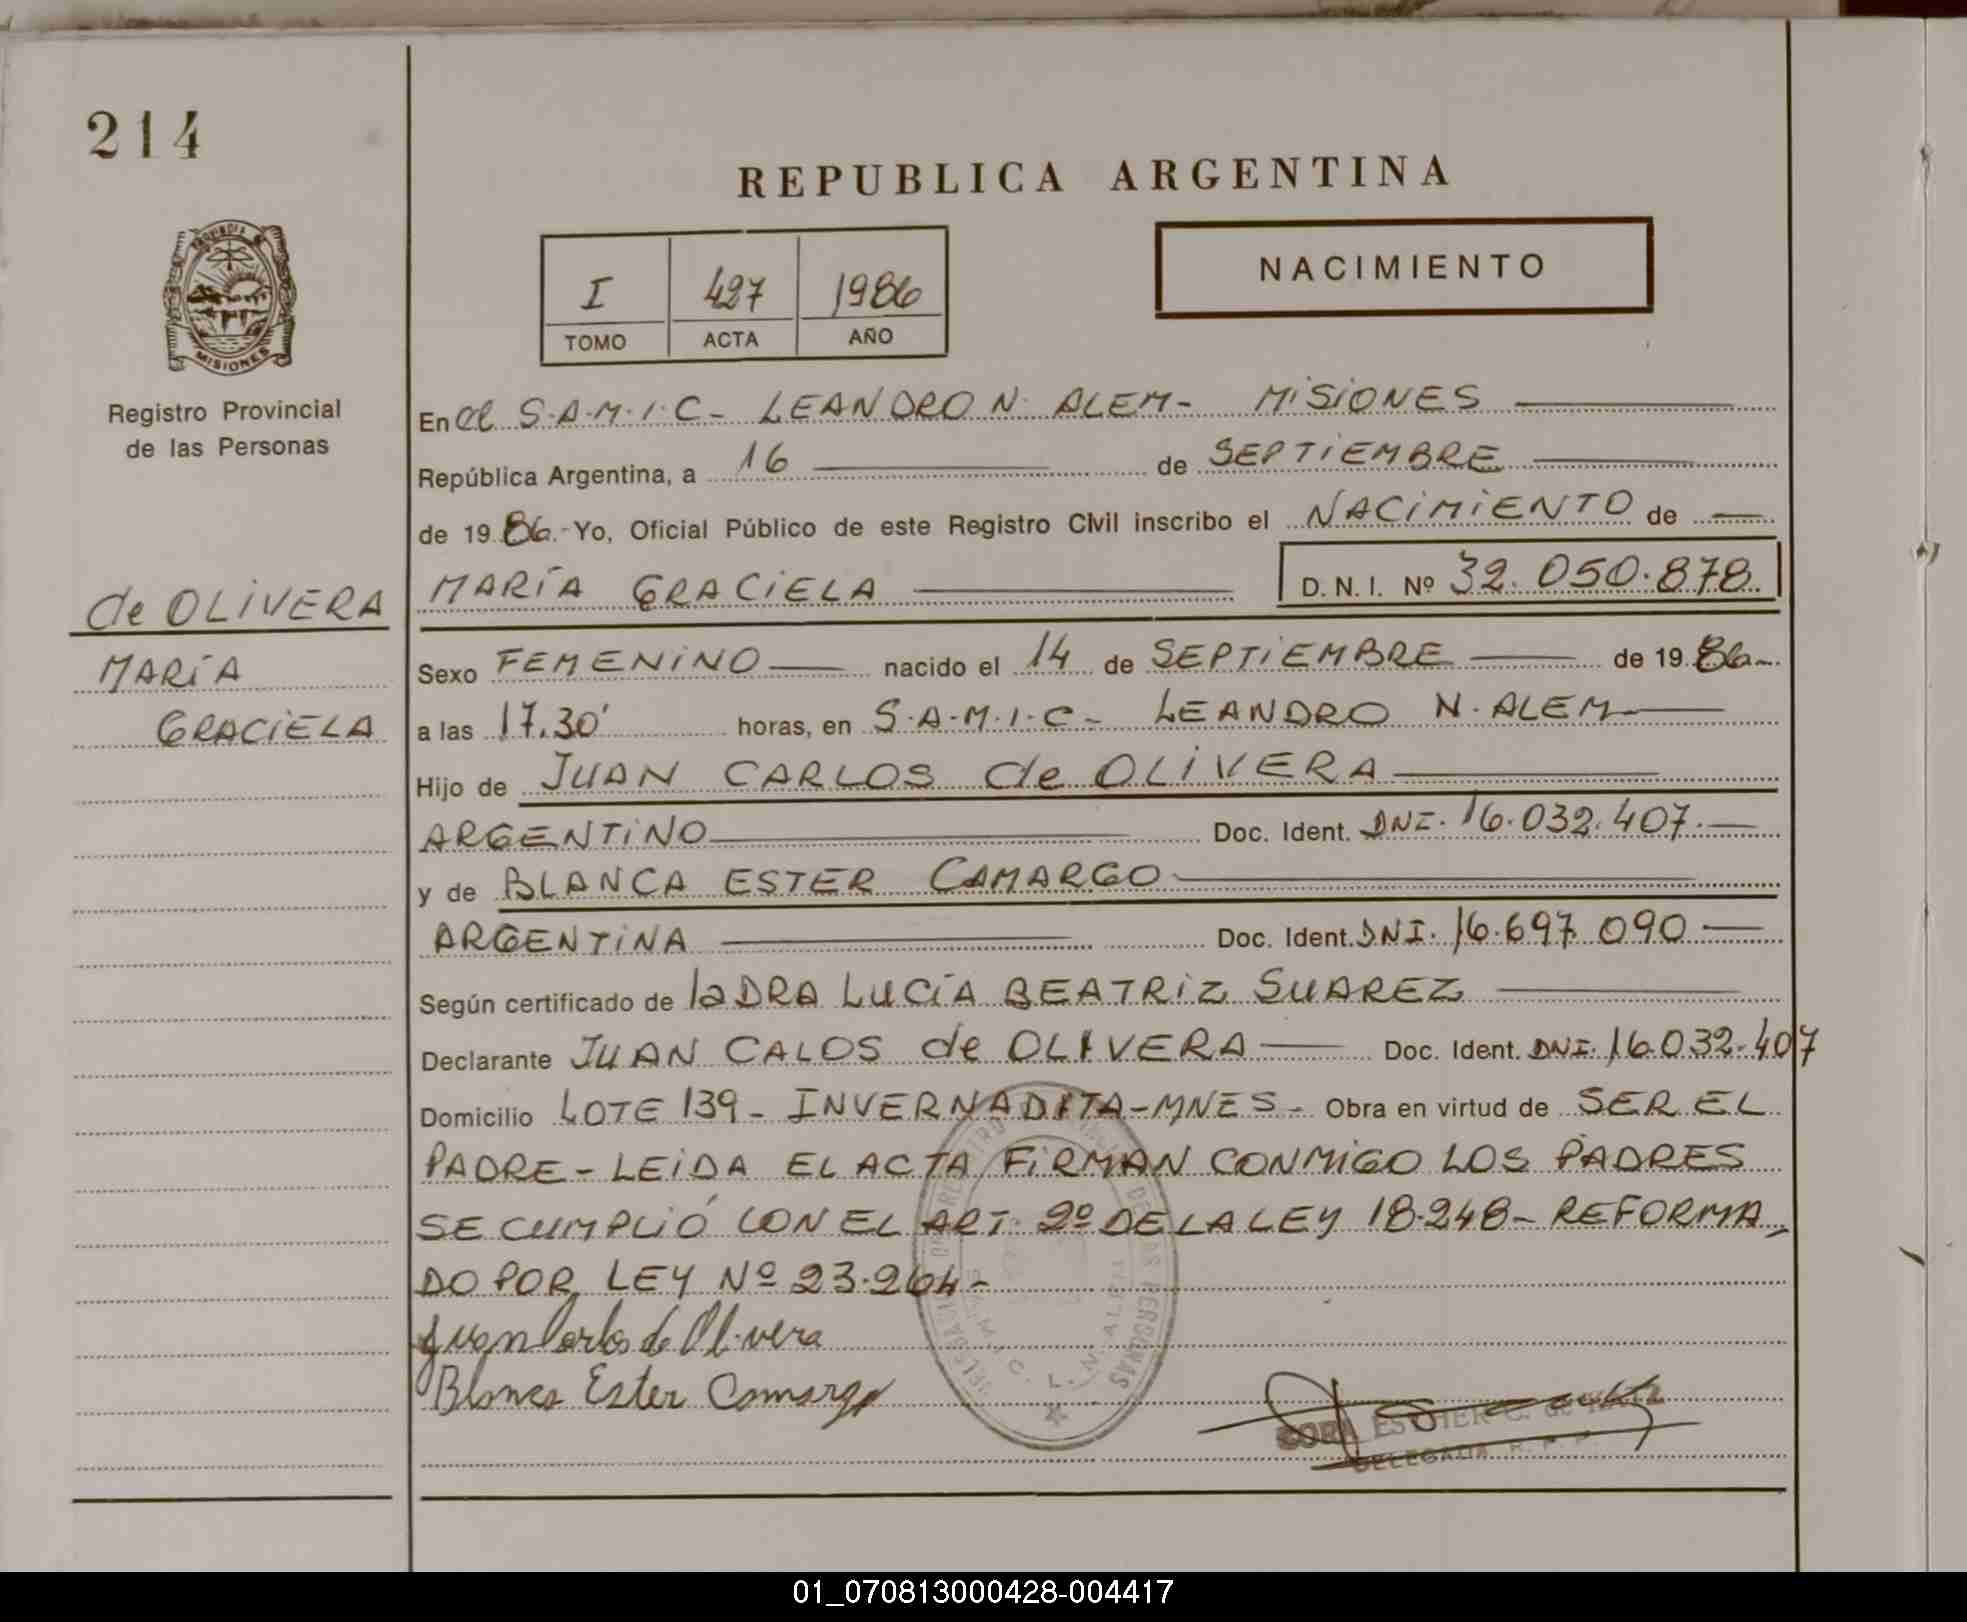 214
REPUBLICA ARGENTINA
PROVINCIA DE
MISIONES
I 427 1986
TOMO ACTA AÑO
NACIMIENTO
Registro Provincial
de las Personas
de OLIVERA
MARÍA
GRACIELA
En el S.A.M.I.C- LEANDRO N. ALEM- MISIONES
República Argentina, a 16 de SEPTIEMBRE
de 1986.- Yo, Oficial Público de este Registro Civil inscribo el NACIMIENTO de
MARÍA GRACIELA D.N.I. Nº 32.050.878.
Sexo FEMENINO nacido el 14 de SEPTIEMBRE de 1986-.
a las 17.30' horas, en S.A.M.I.C- LEANDRO N. ALEM
Hijo de JUAN CARLOS de OLIVERA
ARGENTINO Doc. Ident. DNI. 16.032.407.
y de BLANCA ESTER CAMARGO
ARGENTINA Doc. Ident. DNI. 16.697.090
Según certificado de la DRA LUCÍA BEATRIZ SUAREZ
Declarante JUAN CALOS de OLIVERA Doc. Ident. DNI. 16.032.407
Domicilio LOTE 139- INVERNADITA-MNES- Obra en virtud de SER EL
PADRE- LEIDA EL ACTA FIRMAN CONMIGO LOS PADRES
SE CUMPLIÓ CON EL ART. 2º DE LA LEY 18.248- REFORMA
DO POR LEY Nº 23.264-
Juan Carlos de Olivera
Blanca Ester Camargo
ESTHER C. de
DELEGADA R. P. P.
01_070813000428-004417